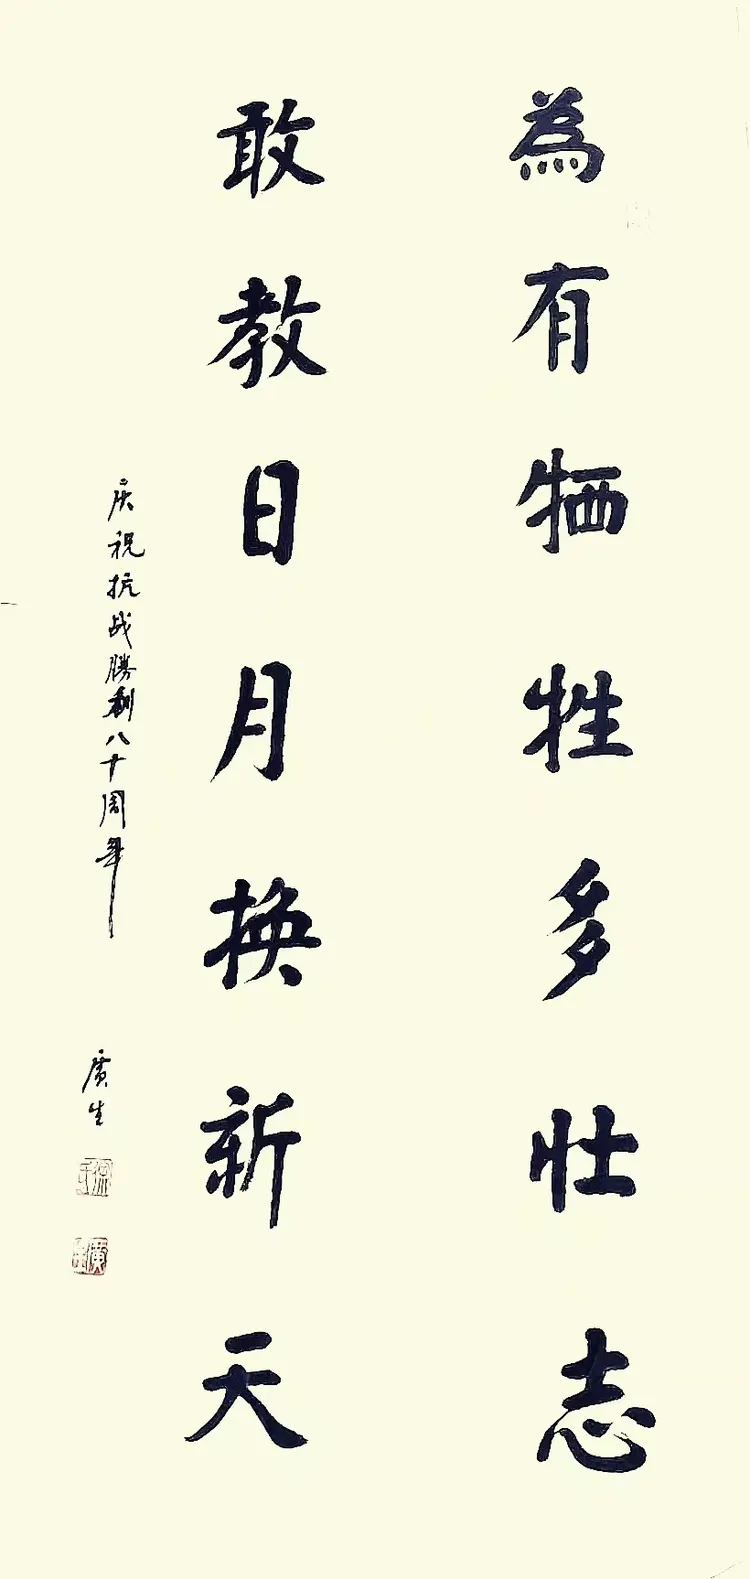 為有牺牲多壮志
敢教日月换新天
庆祝抗战勝利八十周年
廣生
廣生